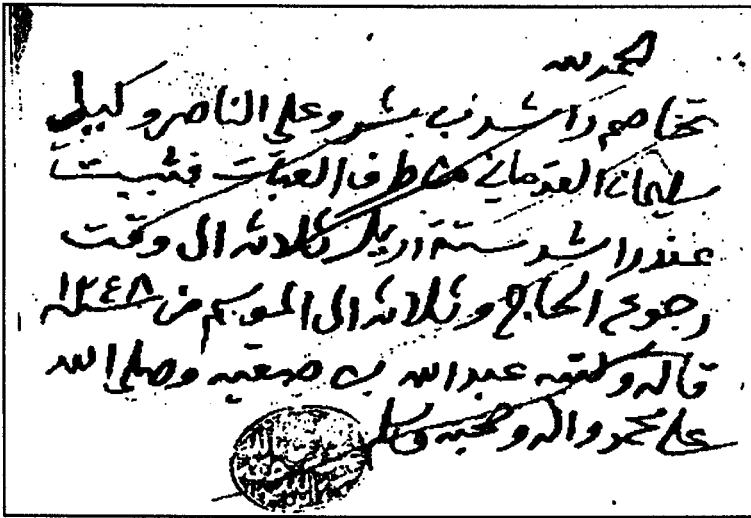 الحمد لله
تخاصم راشد بن بشر وعلي الناصر وكيل
سليمان العثماني من طرف فثبت
عند راشد ستة اريل ثلاثة الى وقت
رجوع الحاج وثلاثة الى الموسم من سنة ١٢٤٨
قاله وكتبه عبدالله بن صعقيه وصلى الله
على محمد واله وصحبه وسلم